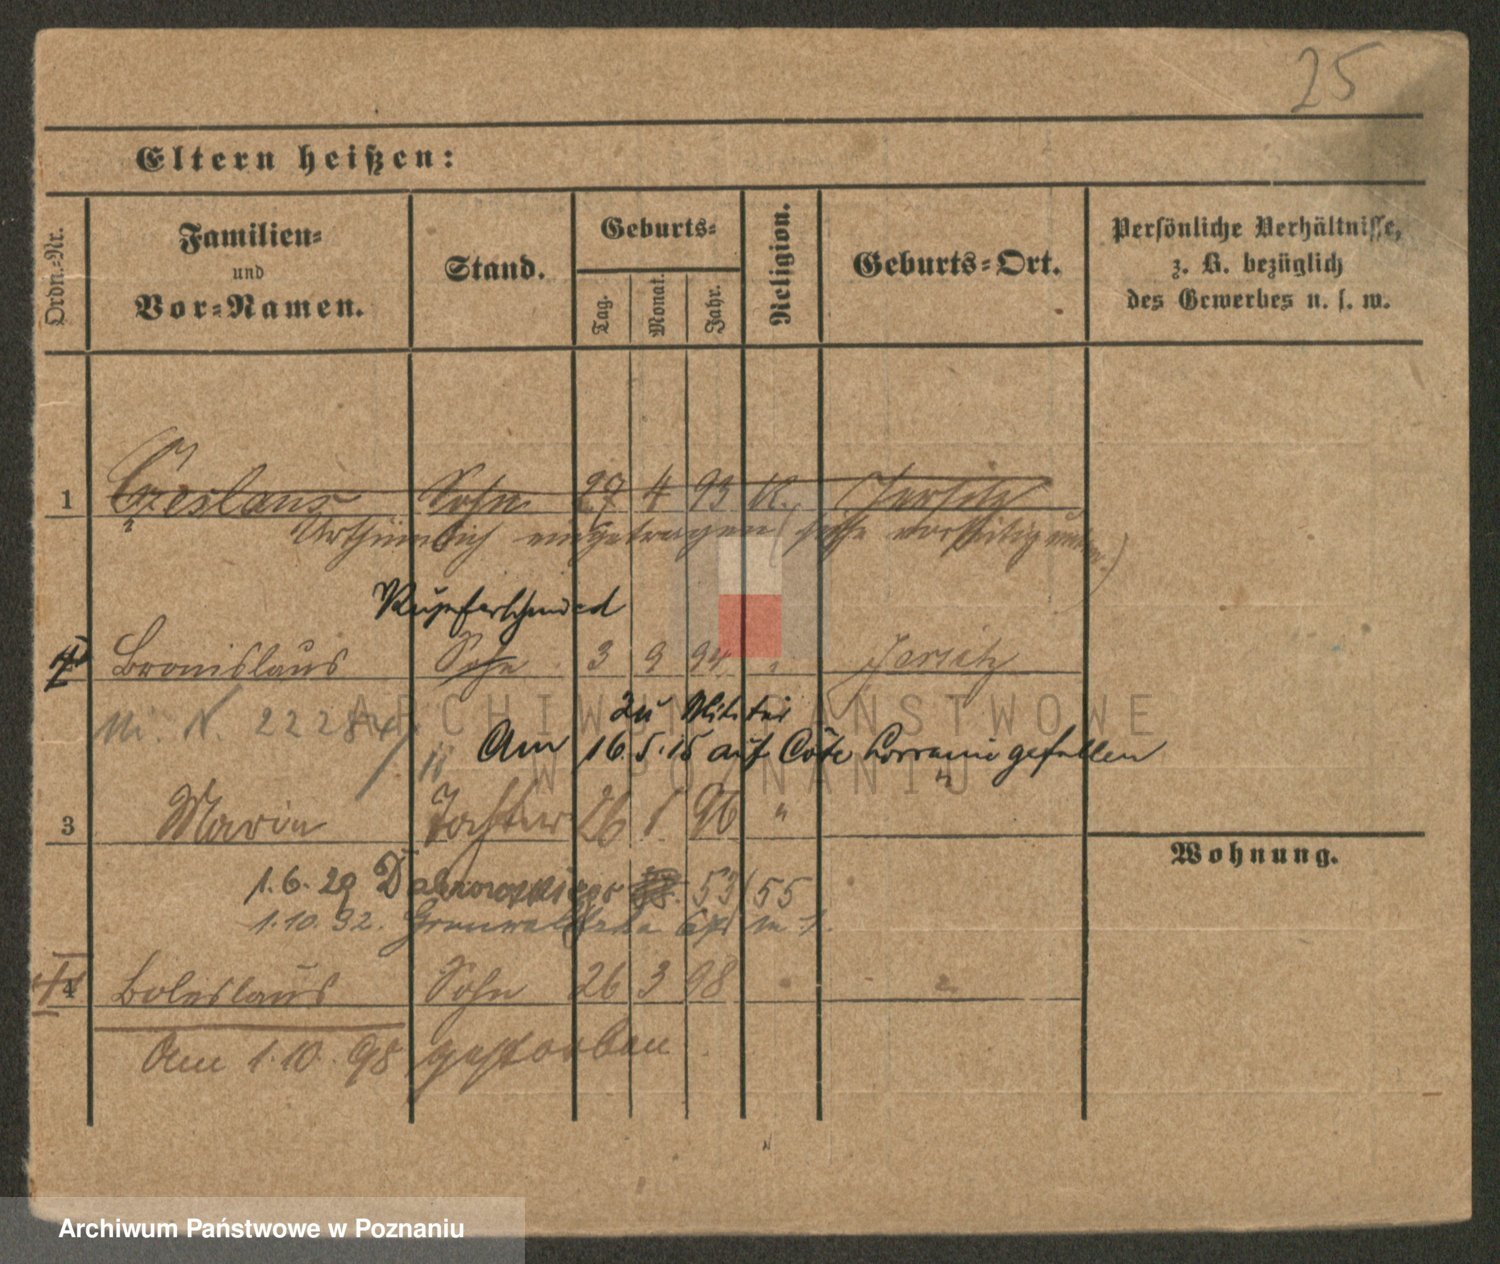 25
Eltern heißen:
Ordn.-Nr.
Familien-
und
Vor-Namen.
Stand.
Geburts-
Tag.
Monat.
Jahr.
Religion.
Geburts-Ort.
Persönliche Verhältnisse,
z. B. bezüglich
des Gewerbes u. s. w.
1 Czeslaus Sohn 27 4 93 K. Jersitz
Irrthümlich eingetragen (siehe
Kupferschmied
Bronislaus Sohn 3 9 94 " Jersitz
zu Militär
Am 16.5.15 auf Côte Lorraine gefallen
3 Maria Tochter 26 1 96 "
Wohnung.
1.6.29 53/55
1.10.32. m 1.
4 Boleslaus Sohn 26 3 98 " "
Am 1.10.98 gestorben
ARCHIWUM PAŃSTWOWE
W POZNANIU
Archiwum Państwowe w Poznaniu